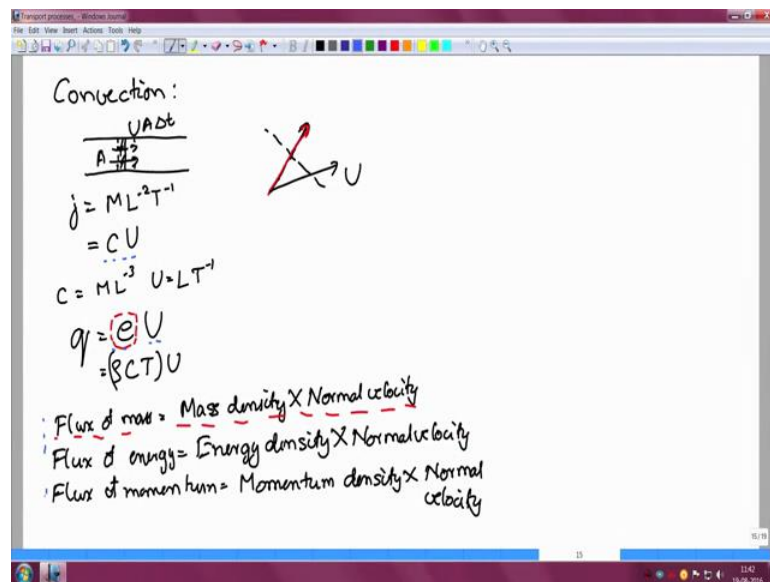 Transport processes_ - Windows Journal
File Edit View Insert Actions Tools Help
Convection:
UAΔt
A
U
j = ML⁻²T⁻¹
= CU
C = ML⁻³ U = LT⁻¹
q = e U
= (ρCT)U
Flux of mass = Mass density X Normal velocity
Flux of energy = Energy density X Normal velocity
Flux of momentum = Momentum density X Normal
velocity
15/19
15
11:42
19-08-2016